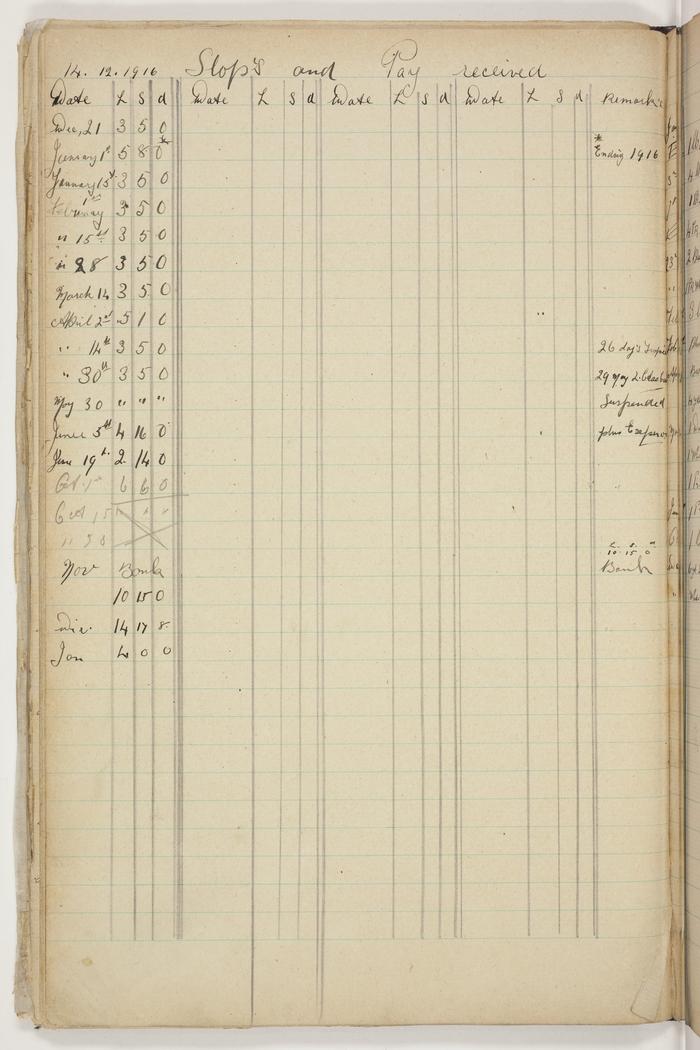 14. 12. 1916 Slop's and Pay received
Date £ S d Date £ S d Date £ S d Date £ S d Remarks
Dec, 21 3 5 0
January 1st 5 8 0 * * Ending 1916
January 15th 3 5 0
February 1st 3 5 0
" 15th 3 5 0
" 28 3 5 0
March 14 3 5 0
April 2nd 5 1 0
" 14th 3 5 0 26 day's
" 30th 3 5 0 29 May
May 30 " " " Suspended
June 5th 4 16 0 plus
June 19th 2 14 0
Oct 1st 6 6 0
Oct 15 " "
" 28
£ s d
10 15 0
Nov Bank Bank
10 15 0
Dec. 14 17 8
Jan 4 0 0